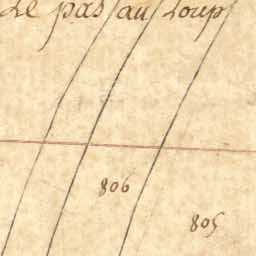 Le pas au Loup
806
805